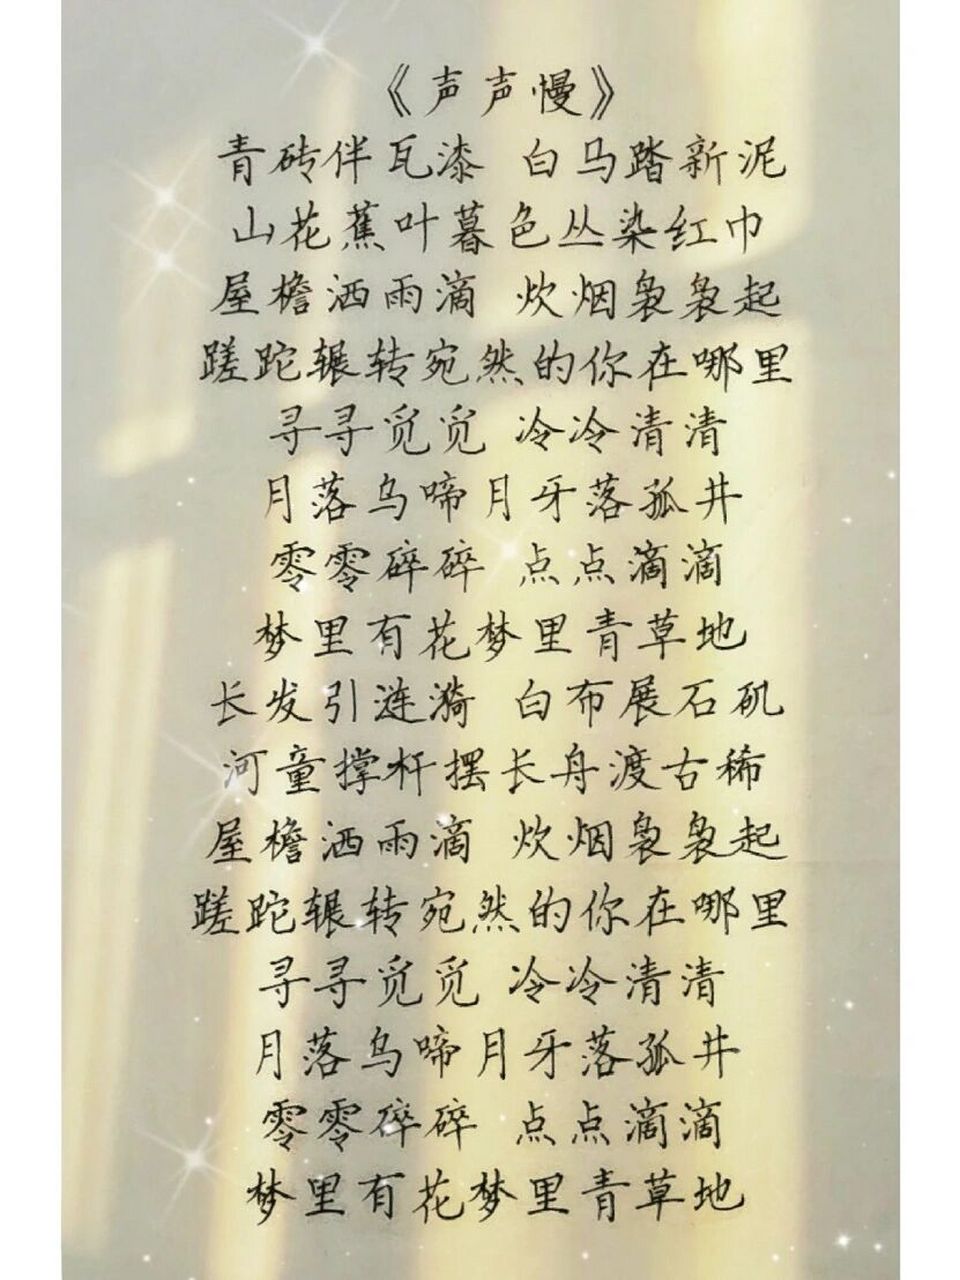 《声声慢》
青砖伴瓦漆 白马踏新泥
山花蕉叶暮色丛染红巾
屋檐洒雨滴 炊烟袅袅起
蹉跎辗转宛然的你在哪里
寻寻觅觅 冷冷清清
月落乌啼月牙落孤井
零零碎碎 点点滴滴
梦里有花梦里青草地
长发引涟漪 白布展石矶
河童撑杆摆长舟渡古稀
屋檐洒雨滴 炊烟袅袅起
蹉跎辗转宛然的你在哪里
寻寻觅觅 冷冷清清
月落乌啼月牙落孤井
零零碎碎 点点滴滴
梦里有花梦里青草地